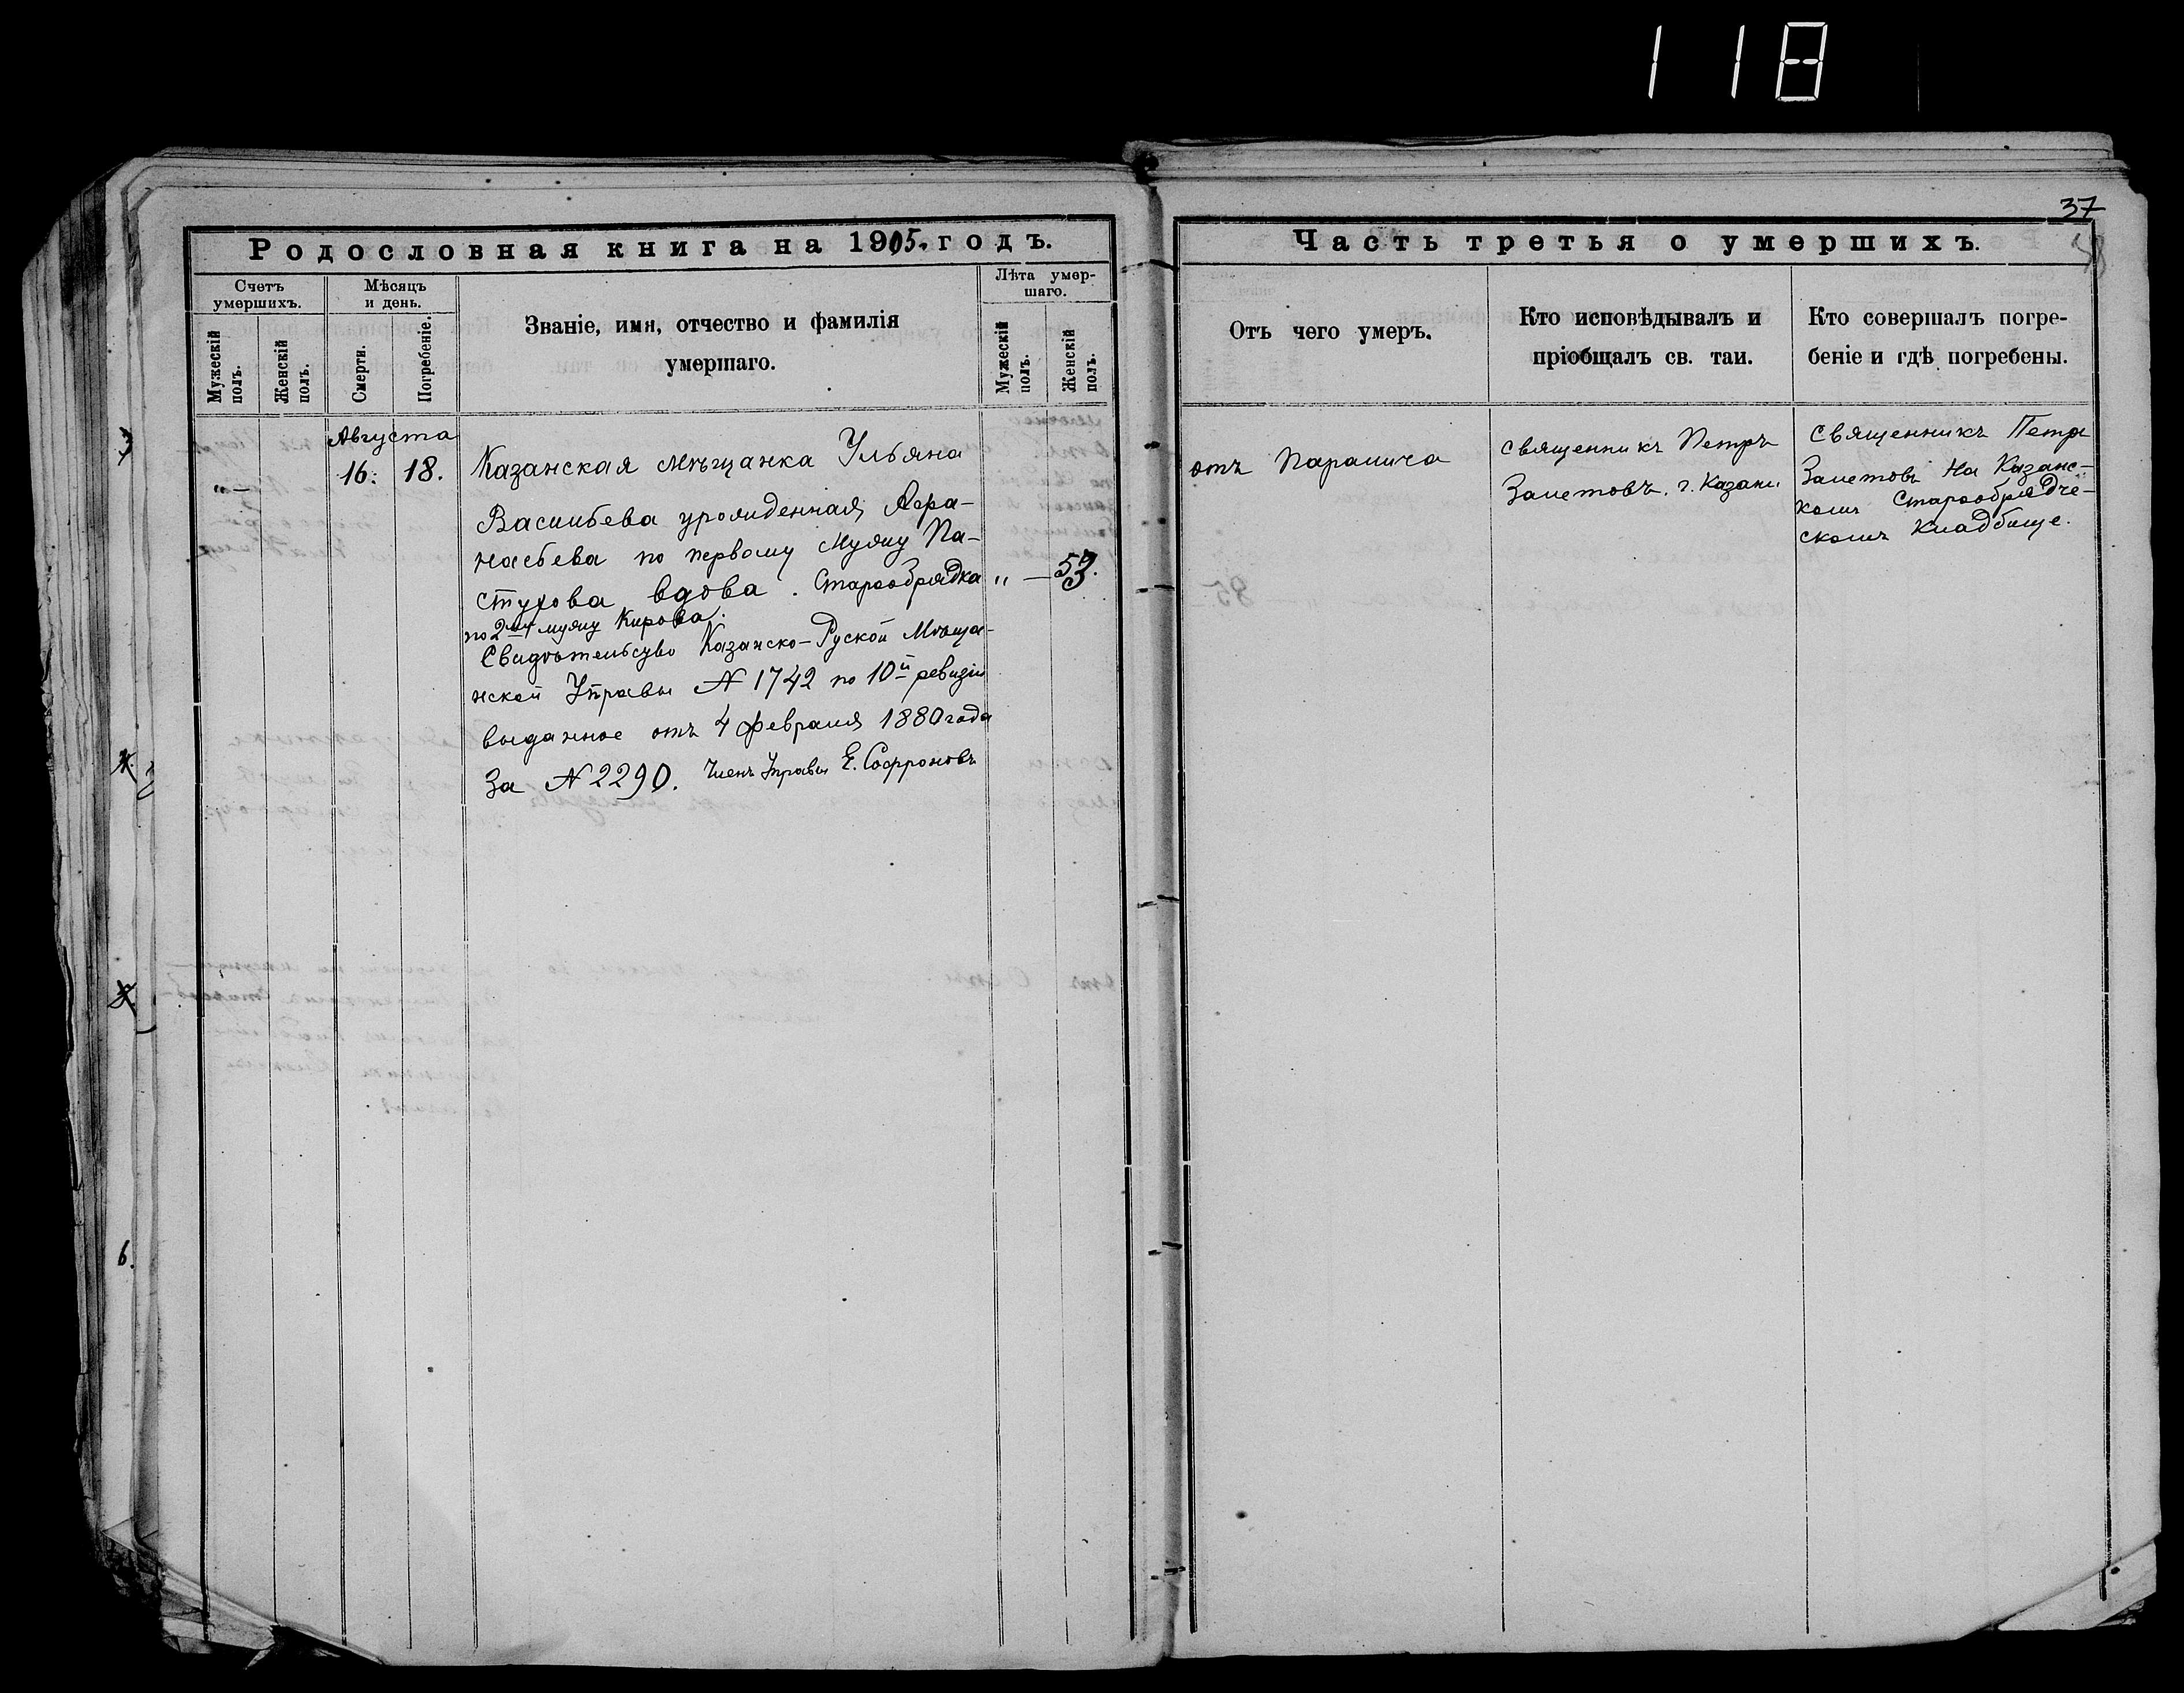 118
37
Родословная книга на 1905 годъ.
Счетъ
умершихъ.
Мѣсяцъ
и день.
Званіе, имя, отчество и фамилія
умершаго.
Лѣта умер-
шаго.
Мужескій
полъ.
Женскій
полъ.
Смерти.
Погребеніе.
Мужескій
полъ.
Женскій
полъ.
Августа
16. 18.
Казанская мѣщанка Ульяна
Васильева урожденная Афа-
насьева по первому мужу Па-
стухова вдова. Старообрядка
по 2му мужу Кирова.
Свидѣтельсуво Казанско-Руской Мѣща-
нской Управы № 1742 по 10й ревизіи
выданное отъ 4 февраля 1880 года
За № 2290. Членъ Управы Е. Софроновъ
" — 53.
Часть третья о умершихъ.
Отъ чего умеръ.
Кто исповѣдывалъ и
пріобщалъ св. таи.
Кто совершалъ погре-
беніе и гдѣ погребены.
отъ Паралича
священникъ Петръ
Залетовъ. г. Казани
Священникъ Петръ
Залетовъ На Казанс-
комъ Старообрядче-
скомъ Кладбище.
6.